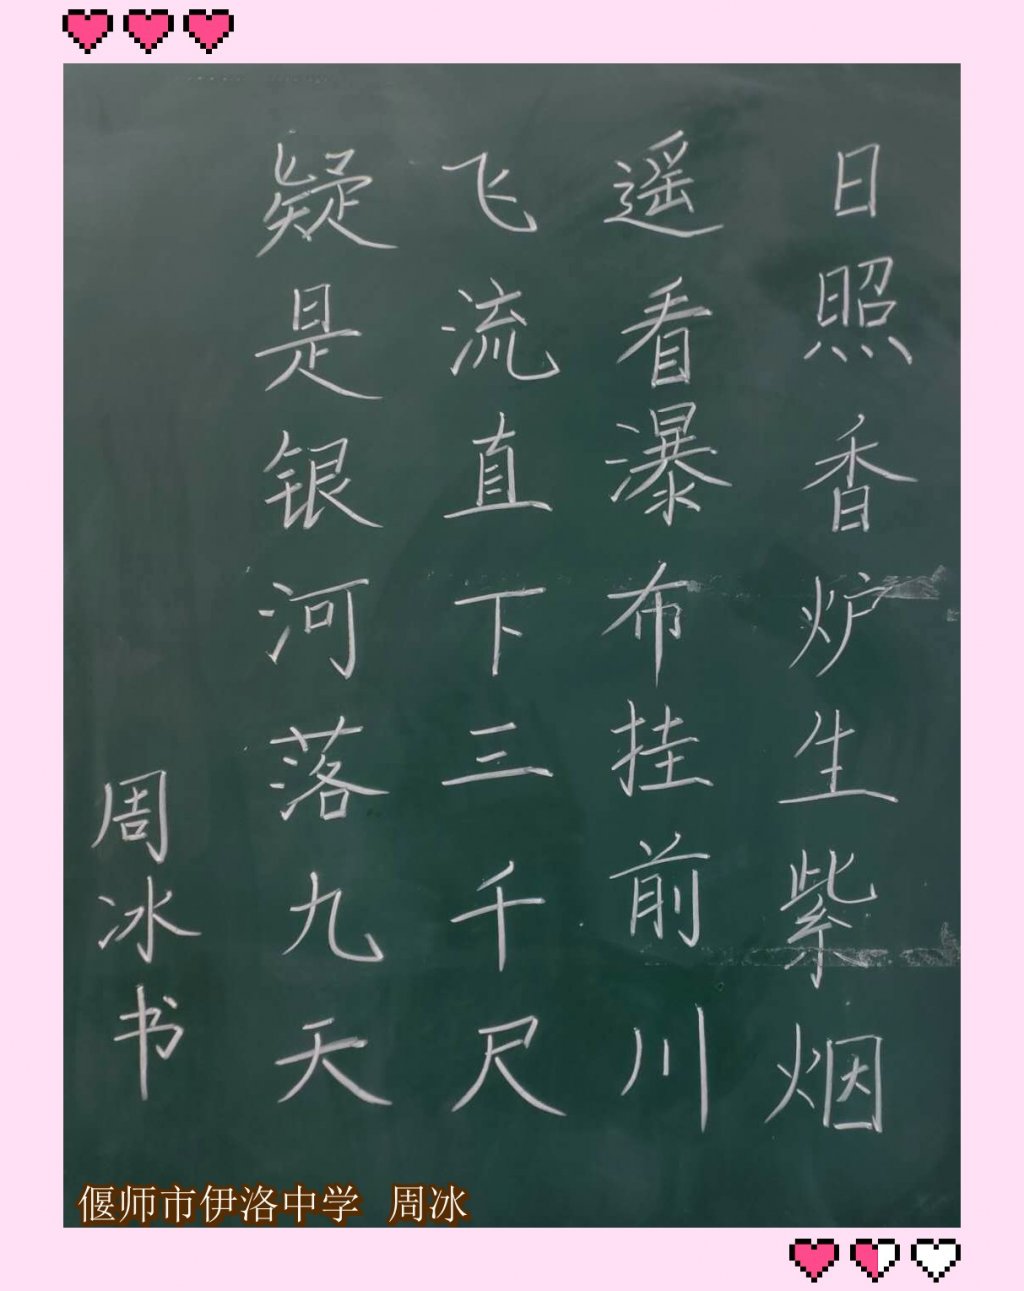 日照香炉生紫烟
遥看瀑布挂前川
飞流直下三千尺
疑是银河落九天
周冰书
偃师市伊洛中学 周冰